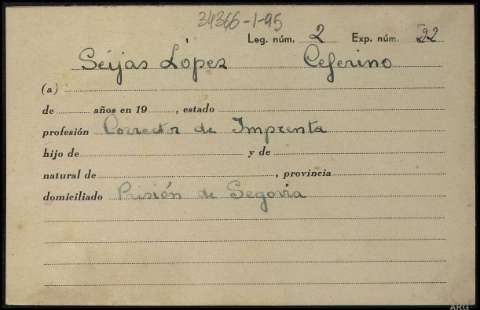 34366-1-95
Leg. núm. 2 Exp. núm. 22
Seijas López Ceferino
(a)
de años en 19 , estado
profesión Corrector de Imprenta
hijo de y de
natural de , provincia
domiciliado Prisión de Segovia
ARG